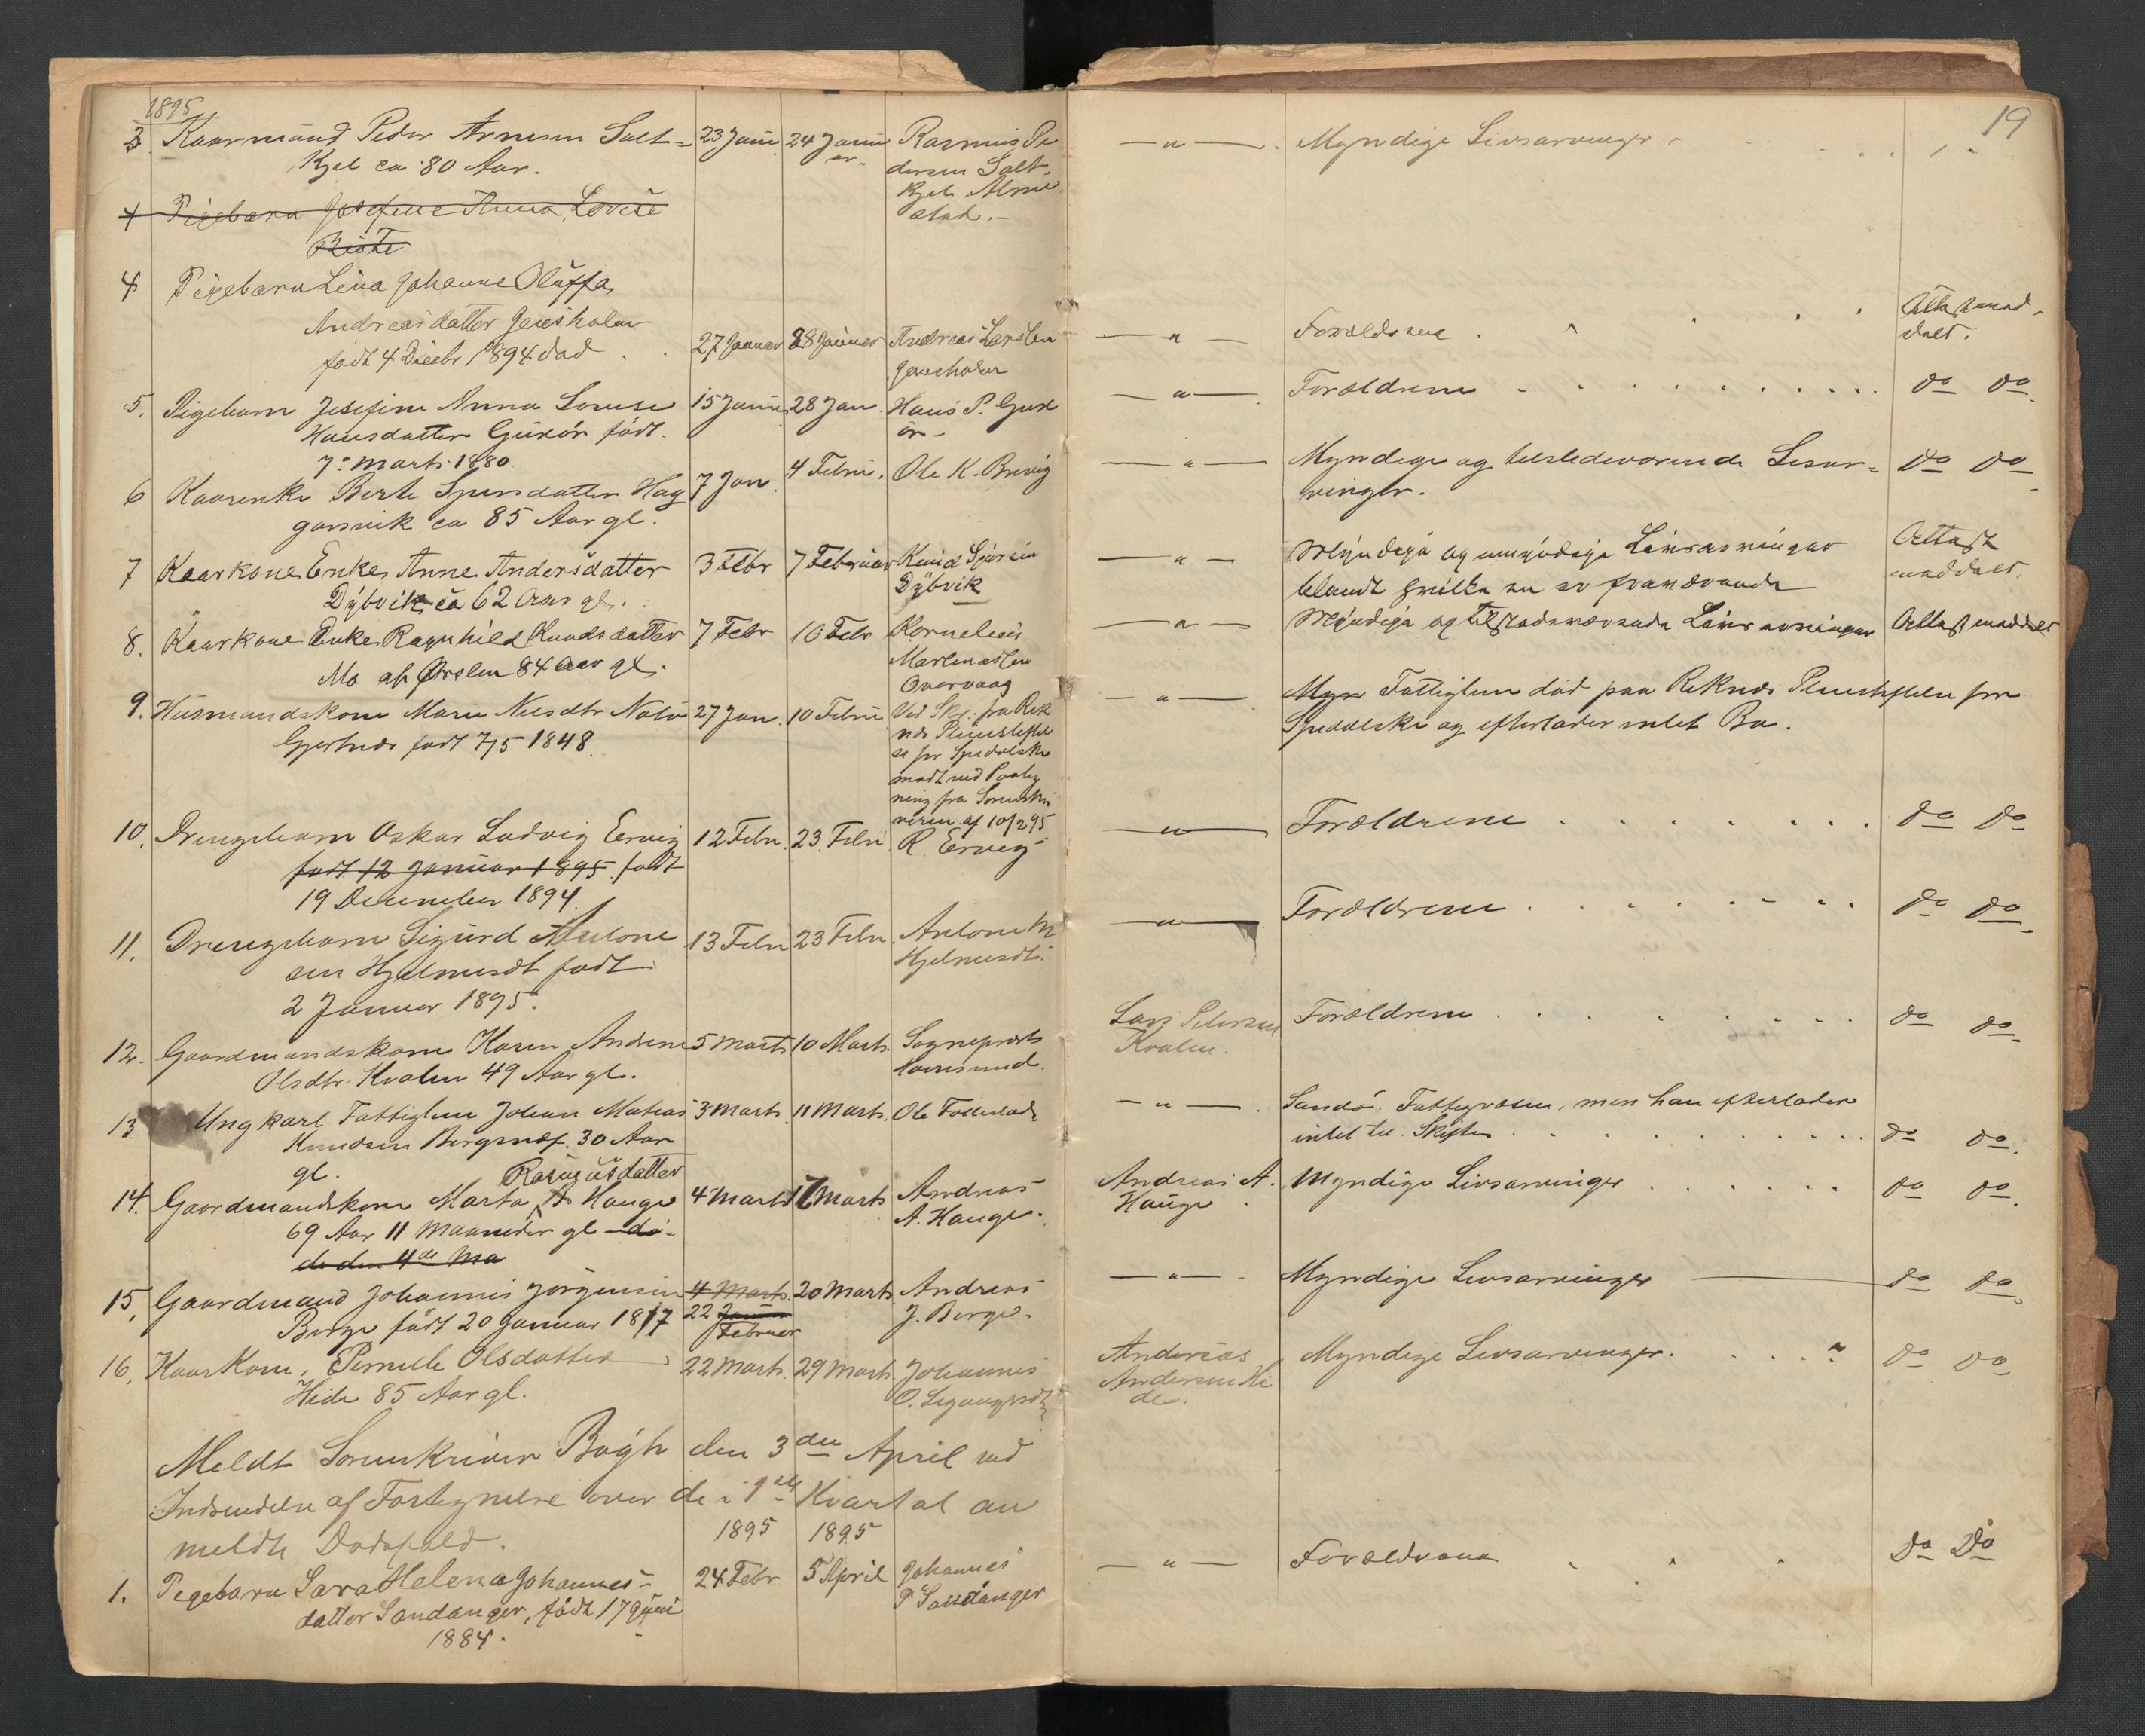 1895
3 Kaarmand Peder Arnesen Salt=
Kjel ca 80 Aar.
23 Janu 24 Janu
ar
Rasmus Pe
dersen Salt
kjel Alme
stad.
4 Pigebarn Josefine Anna Lovise
Riste
4 Pigebarn Lina Johanne Oluffa
Andreasdatter Jensholm
født 4 Decbr 1894 død . .
27 Januar 28 Januar Andreas Larsen
Jensholm
5. Pigebarn Josefine Anna Lovise
Hansdatter Gursør født.
7de Marts 1880
15 Janu 28 Jan. Hans P. Gurs
ør
6 Kaarenke Berte Syversdatter Hag
garsvik ca 85 Aar gl.
7 Jan. 4 Febru. Ole K. Brevig
7 Kaarkone Enke Anne Andersdatter
Dybvik ca 62 Aar gl.
3 Febr 7 Februar Knud Sjursen
Dybvik
8. Kaarkone Enke Ragnhild Knudsdatter
Mo af Ørsten 84 Aar gl.
7 Febr 10 Febr Kornelius
Martinussen
Overvaag
9. Husmandskone Maren Nilsdtr Notø
Gjertnes født 7/5 1848.
27 Jan. 10 Febru Ved Skr. fra Rek
næs Pleiestiftel
se for Spedalske
modt med Paateg
ning fra Sorenskri
veren af 10/2 95
10. Drengebarn Oskar Ludvig Ervig
født 12 Januar 1895. født
19 December 1894.
12 Febr. 23. Febr R. Ervig
11. Drengebarn Sigurd Antone
sen Hjelmeseth født
2 Januar 1895.
13 Febr 23 Febr. Antone M
Hjelmeseth.
12. Gaardmandskone Karen Andrine
Olsdtr. Kvalen 49 Aar gl.
5 Marts 10 Marts. Sogneprest
Havnsund.
13 Ungkarl Fattiglem Johan Matias
Knudsen Bergsnæs. 30 Aar
gl.
3 Marts. 11 Marts. Ole
Rasmusdatter
14. Gaardmandskone Marta A Hauge
69 Aar 11 Maaneder gl dø
de den 4de Ma
4 Marts 17 Marts Andreas
A. Hauge.
15. Gaardmand Johannes Jørgensen
Berge født 20 Januar 1817
4 Marts. 20 Marts. Andreas
22 Janu
Februar
J. Berge.
16. Kaarkone, Pernille Olsdatter
Hide 85 Aar gl.
22 Marts. 29 Marts. Johannes
O.
Meldt Sorenskriver Bøgh den 3die April ved
Indsendelse af Fortegnelse over de i 1ste Kvartal an
meldte Dødsfald.
1895 1895
1. Pigebarn Sara Helena Johannes-
datter Sandanger, født 17 Juni
1884.
24 Febr 5 April Johannes
P Sandanger
19
— " — . Myndige Livsarvinger .
— " — Forældrene . Attest med
delt.
— " — . Forældrene . do do.
— " — Myndige og tilstedeværende Livsar=
vinger.
do do
— " — Myndige og umyndige Livsarvinger
blandt hvilke en er fraværende
Attest
meddelt.
— " — Myndige og tilstedeværende Livsarvinger Attest meddelt
— " — Myre Fattiglem død paa Reknæs Pleiestiftelse for
Spedalske og efterlader intet Bo.
— " — Forældrene . do do.
— " — Forældrene . do do.
Lars Petersen
Kvalen.
Forældrene . do do.
— " — . Sandø. Fattigvæsen, men han efterlader
intet til Skifte . do do.
Andreas A.
Hauge .
Myndige Livsarvinger . do do.
— " — . Myndige Livsarvinger — do do.
Andreas
Andersen Hi
de.
Myndige Livsarvinger. do do.
— " — Forældrene Do Do